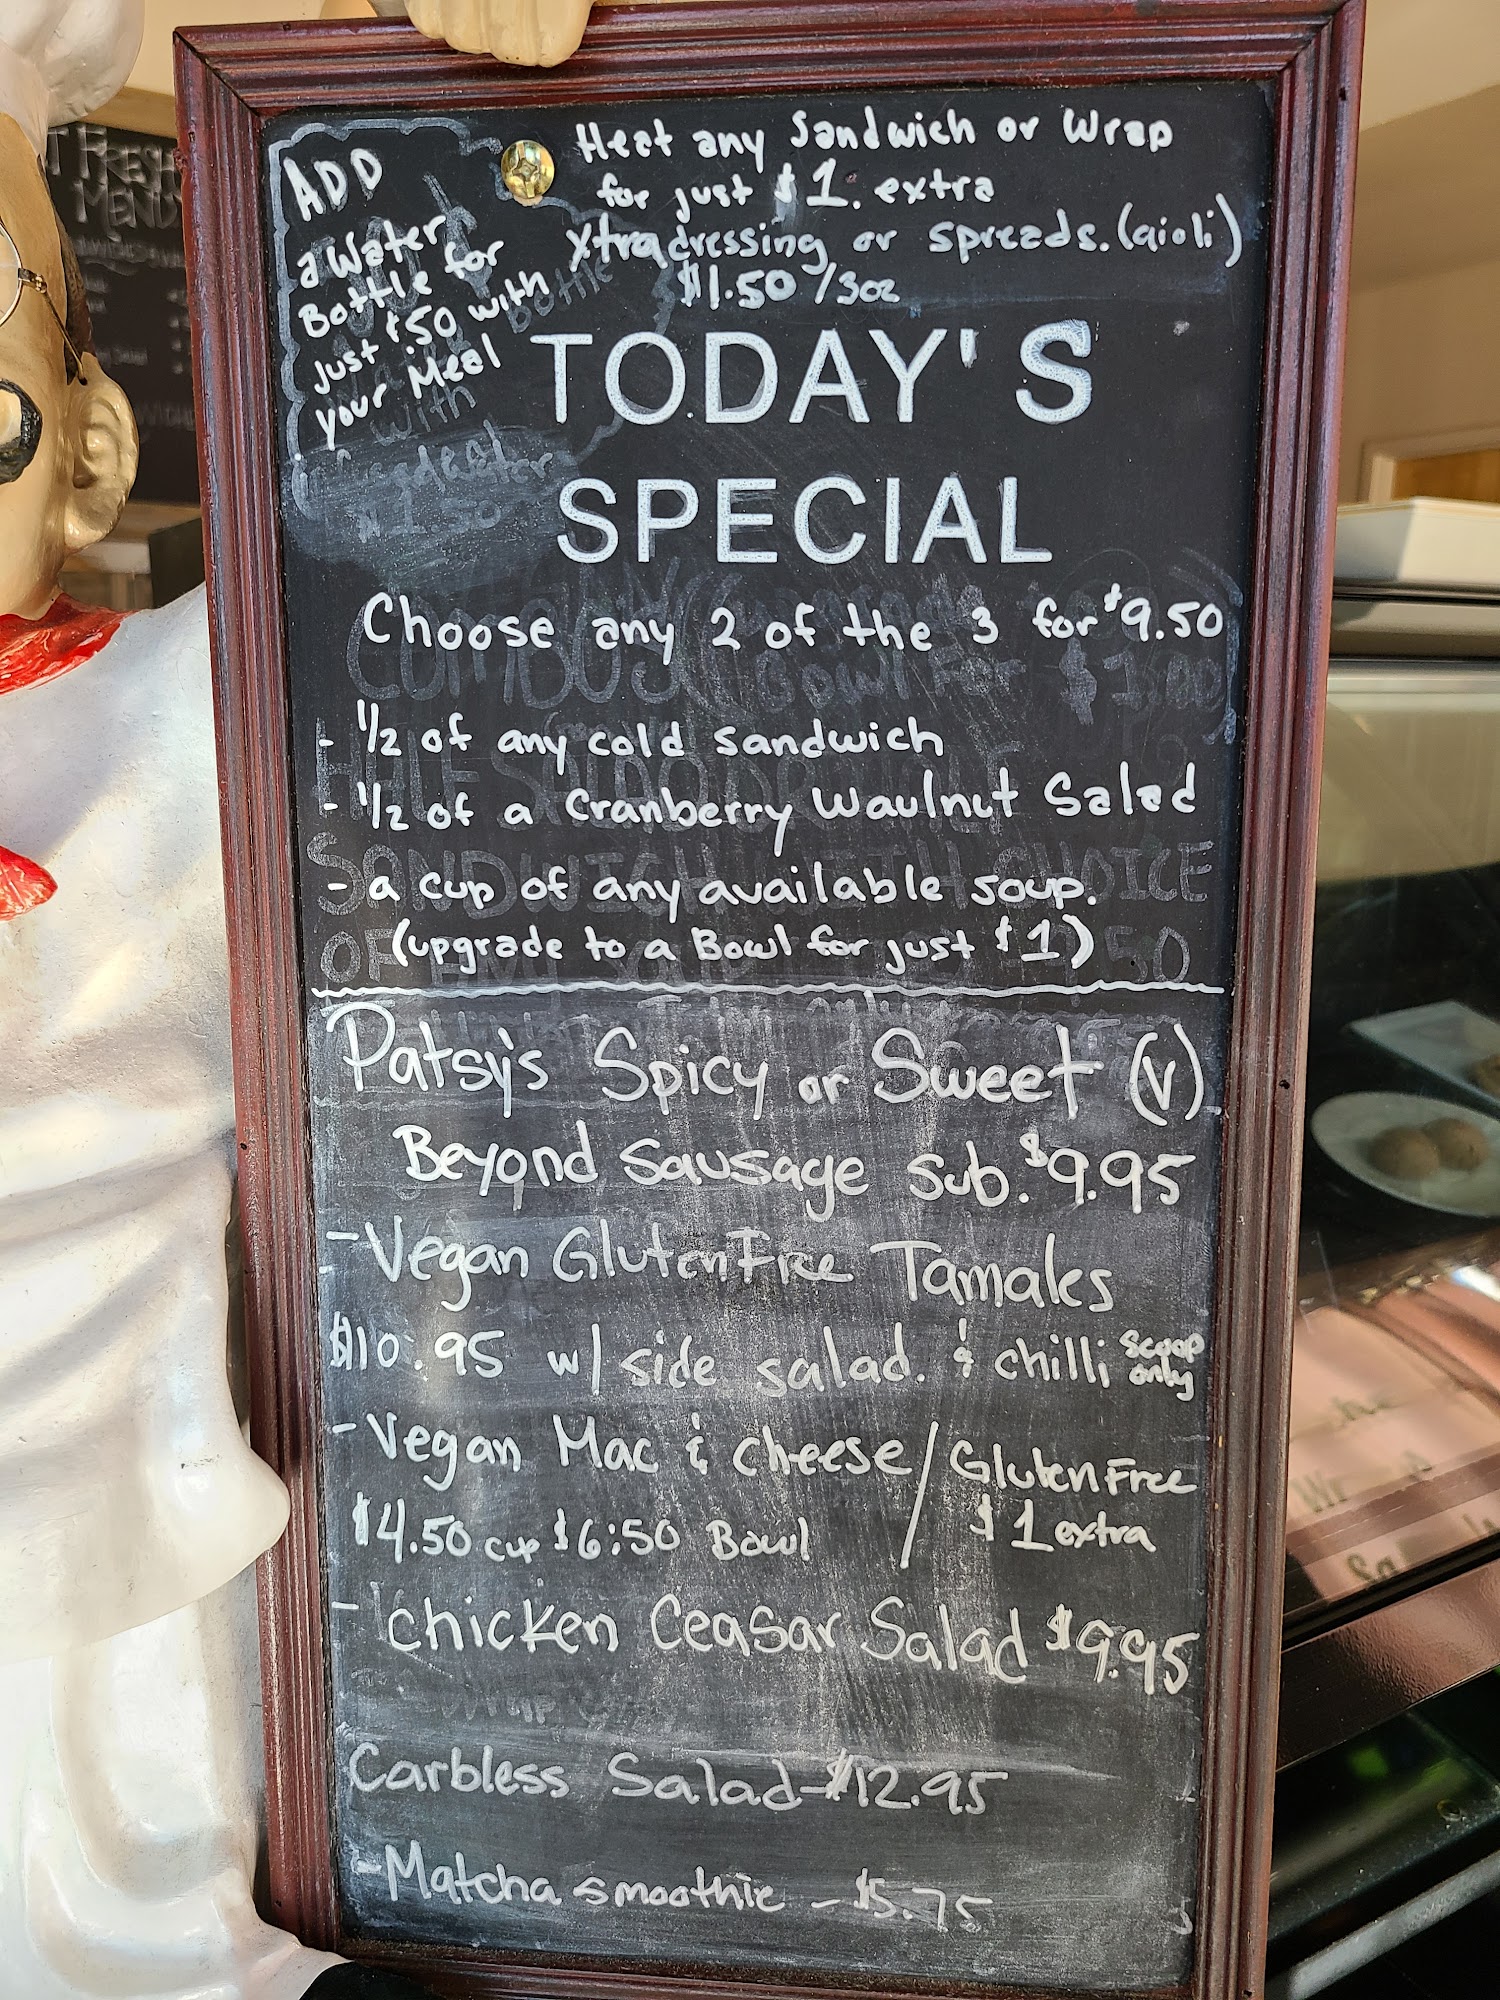 ADD
a Water
Bottle for
just $.50 with
your Meal
Heat any Sandwich or Wrap
for just $1. extra
xtra dressing or spreads. (aioli)
$1.50 /3oz
TODAY'S
SPECIAL
Choose any 2 of the 3 for $9.50
- 1/2 of any cold sandwich
- 1/2 of a Cranberry Waulnut Salad
- a cup of any available soup.
(upgrade to a Bowl for just $1)
Patsy's Spicy or Sweet (V)
Beyond Sausage sub. $9.95
- Vegan Gluten Free Tamales
$10.95 w/ side salad. & chilli scoop only
- Vegan Mac & cheese / Gluten Free
$4.50 cup $6:50 Bowl / $1 extra
- Chicken Ceasar Salad $9.95
Carbless Salad - $12.95
- Matcha smoothie - $5.75
FRESH
MENU